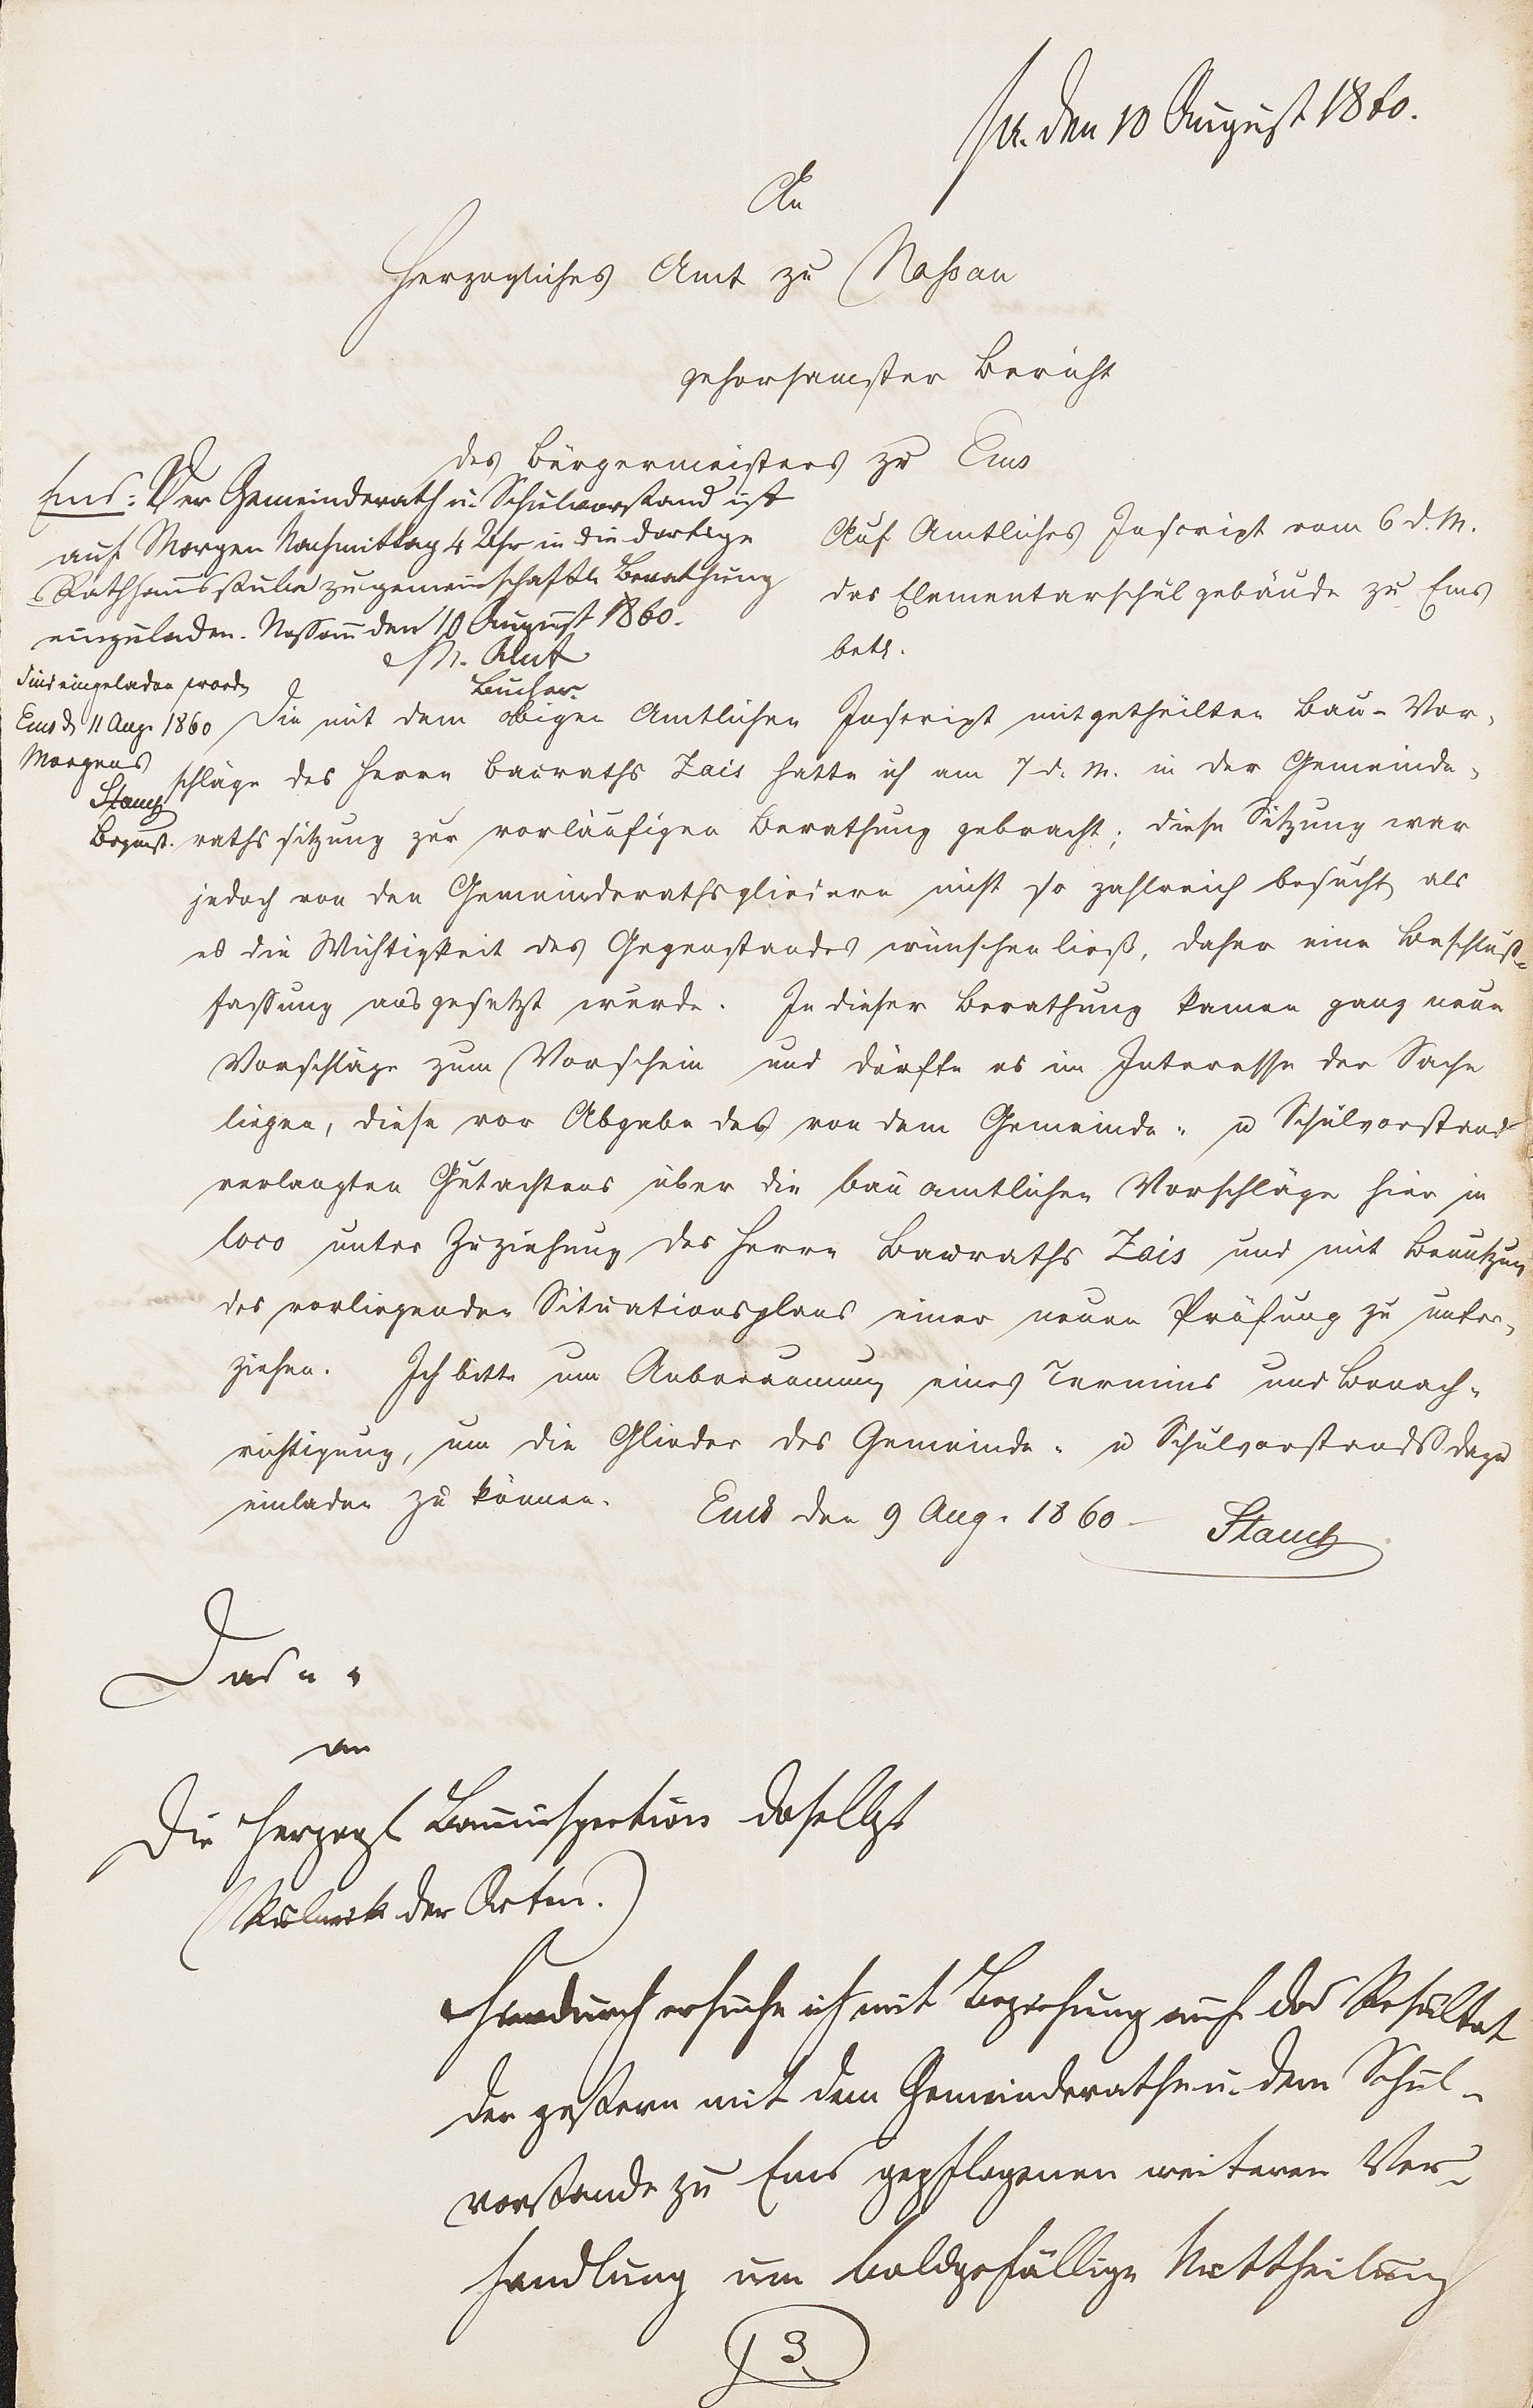 pr. den 10 August 1860.
An
Herzogliches Amt zu Nassau
gehorsamster Bericht
des Bürgermeisters zu Ems
Auf Amtliches Inscript vom 6 d. M.
das Elementarschulgebäude zu Ems
betr.
Ems: Der Gemeinderath u. Schulvorstand ist
auf Morgen Nachmittag 4 Uhr in die dortige
Rathhausstube zu gemeinschaftl. Berathung
einzuladen. Nassau den 10 August 1860.
H. N. Amt
Bucher
Sind eingeladen word.
Ems d. 11 Aug. 1860
Morgens
Stauch
Bgmst.
Die mit dem obigen Amtlichen Inscript mitgetheilten Bau-Vor-
schläge des Herrn Bauraths Zais hatte ich am 7 d. M. in der Gemeinde-
rathssitzung zur vorläufigen Berathung gebracht; diese Sitzung war
jedoch von den Gemeinderathsgliedern nicht so zahlreich besucht, als
es die Wichtigkeit des Gegenstandes wünschen ließ, daher eine Beschluß-
fassung ausgesetzt wurde. In dieser Berathung kamen ganz neue
Vorschläge zum Vorschein und dürfte es im Interesse der Sache
liegen, diese vor Abgabe des von dem Gemeinde- u Schulvorstand
verlangten Gutachtens über die bauamtlichen Vorschläge hier in
loco unter Zuziehung des Herrn Bauraths Zais und mit Benutzung
des vorliegenden Situationsplans einer neuen Prüfung zu unter-
ziehen. Ich bitte um Anberaumung eines Termins und Benach-
richtigung, um die Glieder des Gemeinde- u Schulvorstands dazu
einladen zu können.
Ems den 9 Aug. 1860
Stauch
Das
an
die Herzogl Bauinspection daselbst
(Rubrik der Acten.)
Hierdurch ersuche ich mit Beziehung auf das Resultat
der gestern mit dem Gemeinderathe u. dem Schul-
vorstande zu Ems gepflogenen weiteren Ver-
handlung um baldgefällige Mittheilung
3